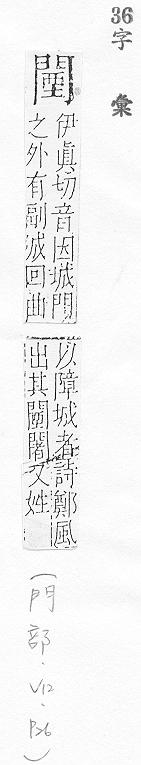 36字彙
闉
伊眞切音因城門
之外有副城回曲
以障城者詩鄭風
出其闉闍又姓
(門部.V12.P26)